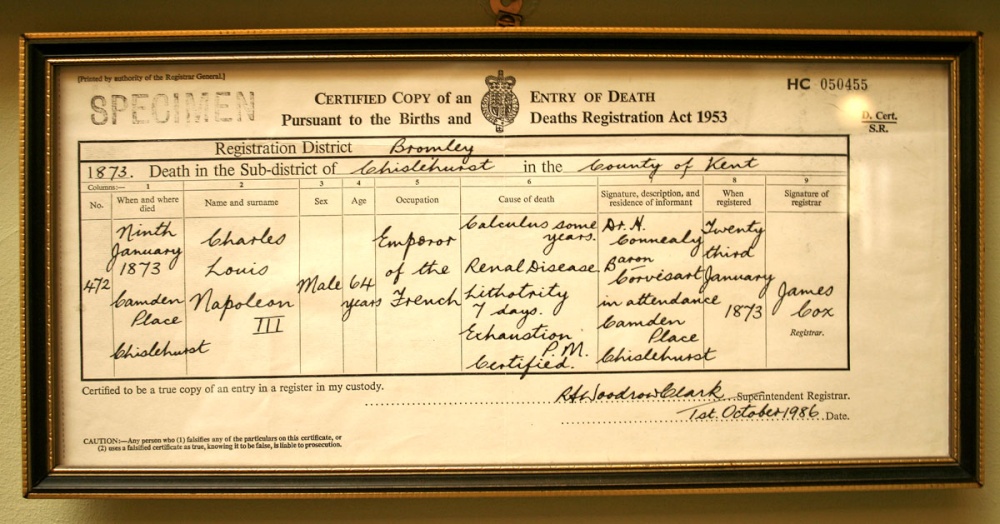 [Printed by authority of the Registrar General.]
HC 050455
SPECIMEN
CERTIFIED COPY OF AN ENTRY OF DEATH
Pursuant to the Births and Deaths Registration Act 1953
D. Cert.
S.R.
Registration District Bromley
1873. Death in the Sub-district of Chislehurst in the County of Kent
Columns:— 1 2 3 4 5 6 7 8 9
No.
When and where
died
Name and surname
Sex
Age
Occupation
Cause of death
Signature, description, and
residence of informant
When
registered
Signature of
registrar
472
Ninth
January
1873
Camden
Place
Chislehurst
Charles
Louis
Napoleon
III
Male
64
years
Emperor
of the
French
Calculus some
years.
Renal Disease
Lithotrity
7 days.
Exhaustion
P.M.
Certified.
Dr. N.
Connealy
Baron
Corvisart
in attendance
Camden
Place
Chislehurst
Twenty
third
January
1873
James
Cox
Registrar.
Certified to be a true copy of an entry in a register in my custody.
R A Woodrow Clark Superintendent Registrar.
1st. October 1986 Date.
CAUTION:—Any person who (1) falsifies any of the particulars on this certificate, or
(2) uses a falsified certificate as true, knowing it to be false, is liable to prosecution.